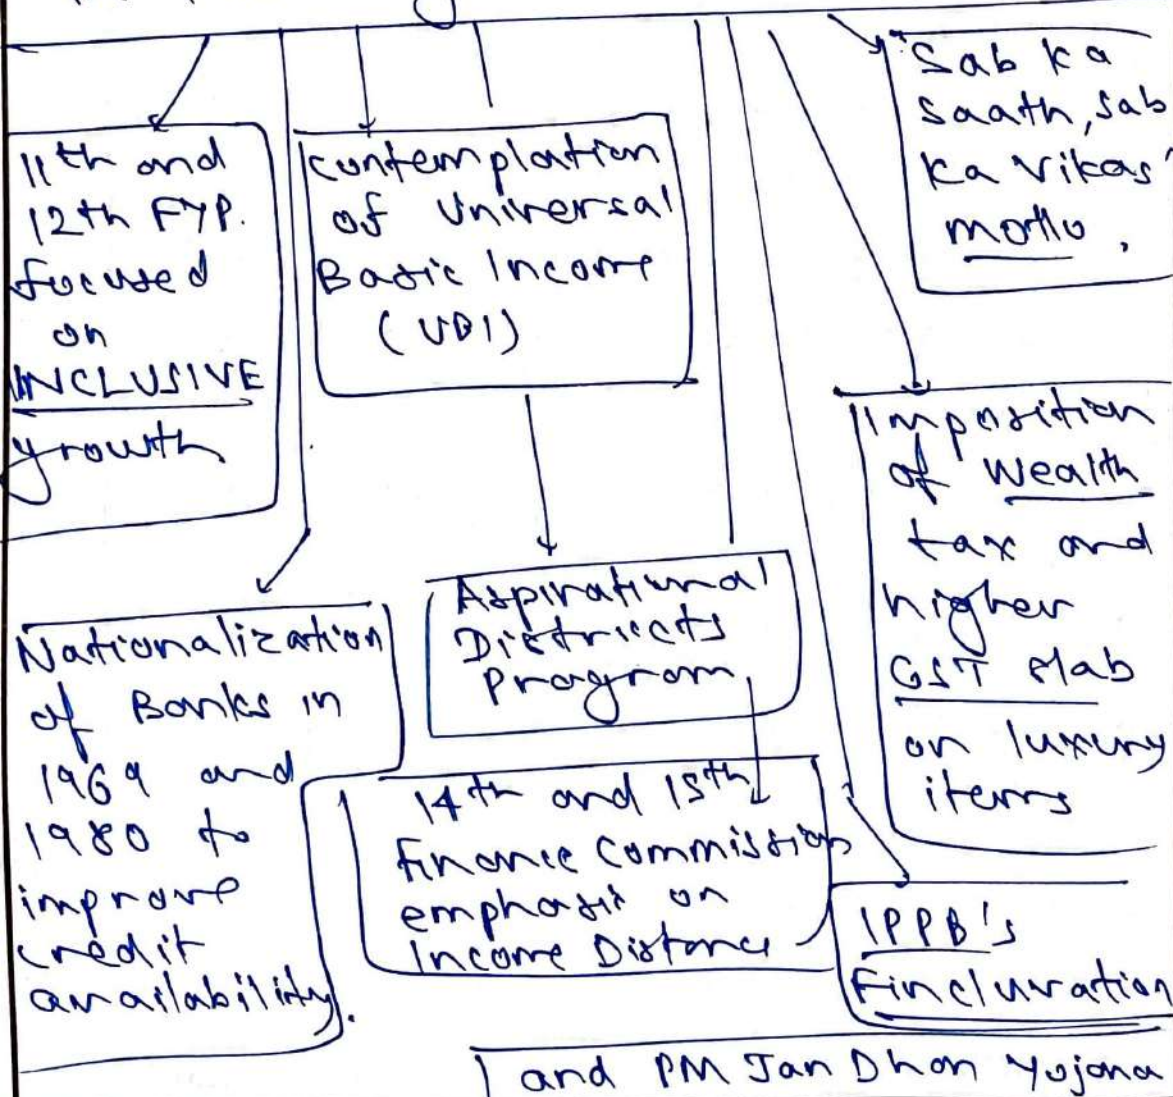 11th and
12th FYP.
focused
on
INCLUSIVE
growth
Contemplation
of Universal
Basic Income
(UBI)
'Sab ka
saath, sab
ka vikas'
motto.
Imposition
of wealth
tax and
higher
GST slab
on luxury
items
Nationalization
of Banks in
1969 and
1980 to
improve
credit
availability.
Aspirational
Districts
Program
14th and 15th
finance commission
emphasis on
Income Distance
IPPB's
Fincluvation
and PM Jan Dhan Yojana